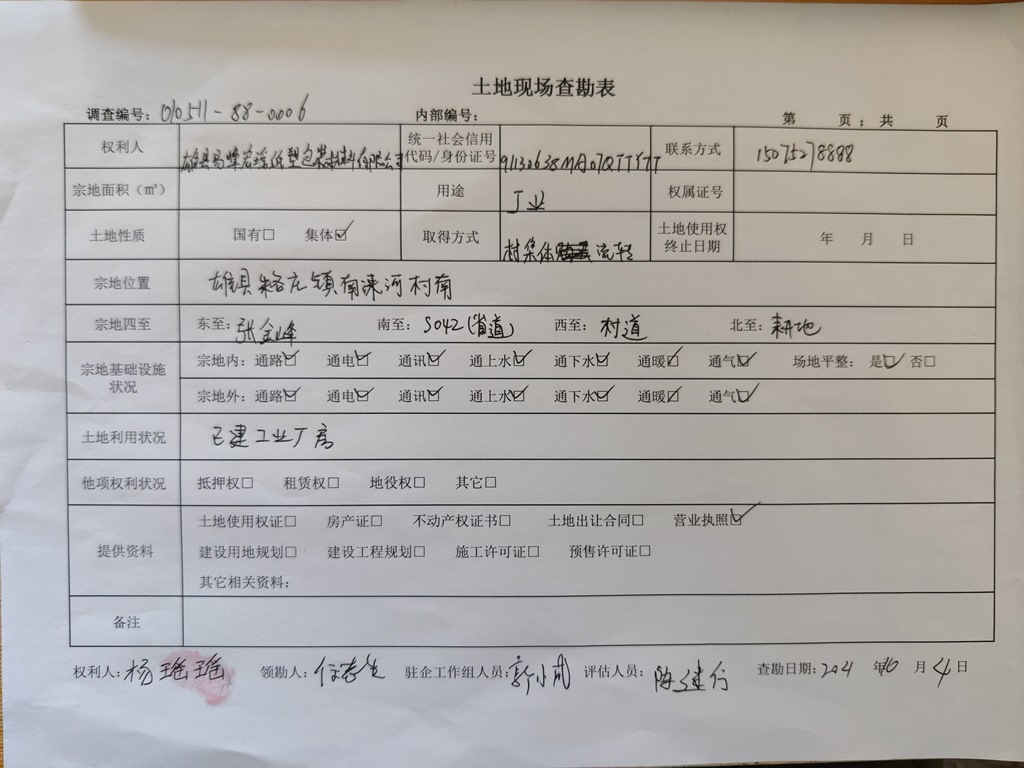 土地现场查勘表
调查编号：010511-88-0006 内部编号： 第 页；共 页
权利人 雄县 包装材料有限公司 统一社会信用代码/身份证号 91130638MA07QTTYTT 联系方式 15075278888
宗地面积（㎡） 用途 工业 权属证号
土地性质 国有□ 集体☑ 取得方式 村集体流转 土地使用权终止日期 年 月 日
宗地位置 雄县 庄镇南涞河村南
宗地四至 东至：张金峰 南至：S042（省道） 西至：村道 北至：耕地
宗地基础设施状况 宗地内：通路☑ 通电☑ 通讯☑ 通上水☑ 通下水☑ 通暖☑ 通气☑ 场地平整： 是☑ 否□
宗地外：通路☑ 通电☑ 通讯☑ 通上水☑ 通下水☑ 通暖☑ 通气☑
土地利用状况 已建工业厂房
他项权利状况 抵押权□ 租赁权□ 地役权□ 其它□
提供资料 土地使用权证□ 房产证□ 不动产权证书□ 土地出让合同□ 营业执照☑
建设用地规划□ 建设工程规划□ 施工许可证□ 预售许可证□
其它相关资料：
备注
权利人：杨瑶瑶 领勘人： 驻企工作组人员： 评估人员： 查勘日期： 年 10 月 4 日